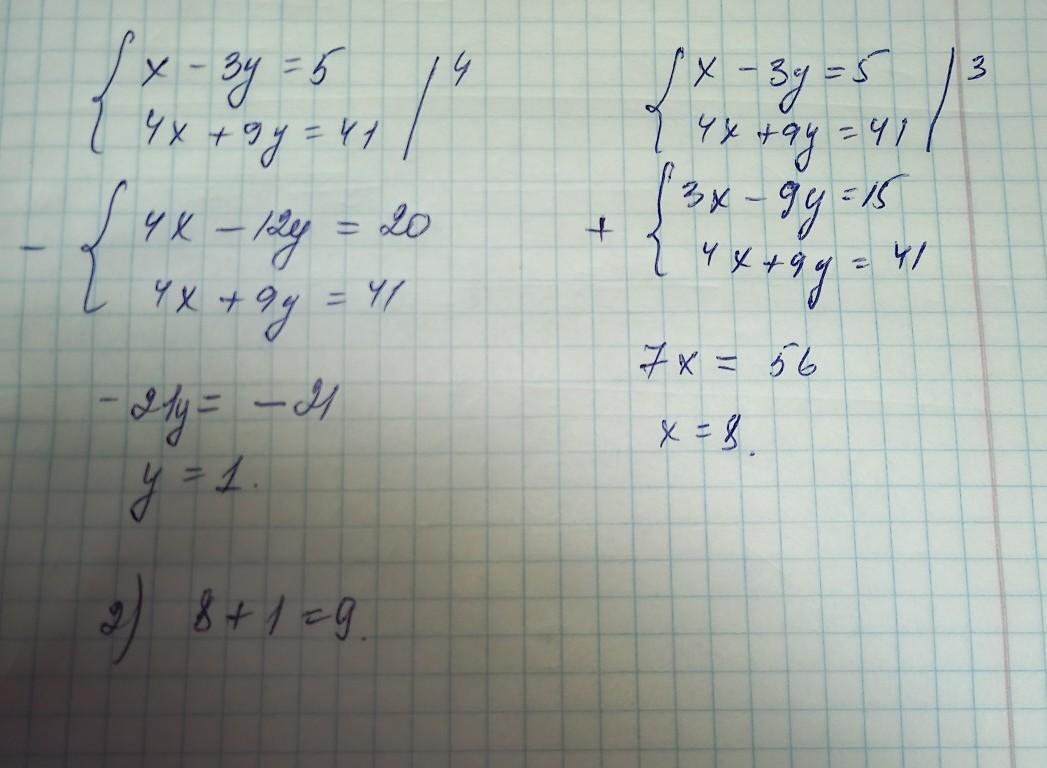 { x - 3y = 5 | 4
4x + 9y = 41
- { 4x - 12y = 20
4x + 9y = 41
- 21y = - 21
y = 1.
{ x - 3y = 5 | 3
4x + 9y = 41
+ { 3x - 9y = 15
4x + 9y = 41
7x = 56
x = 8.
2) 8 + 1 = 9.